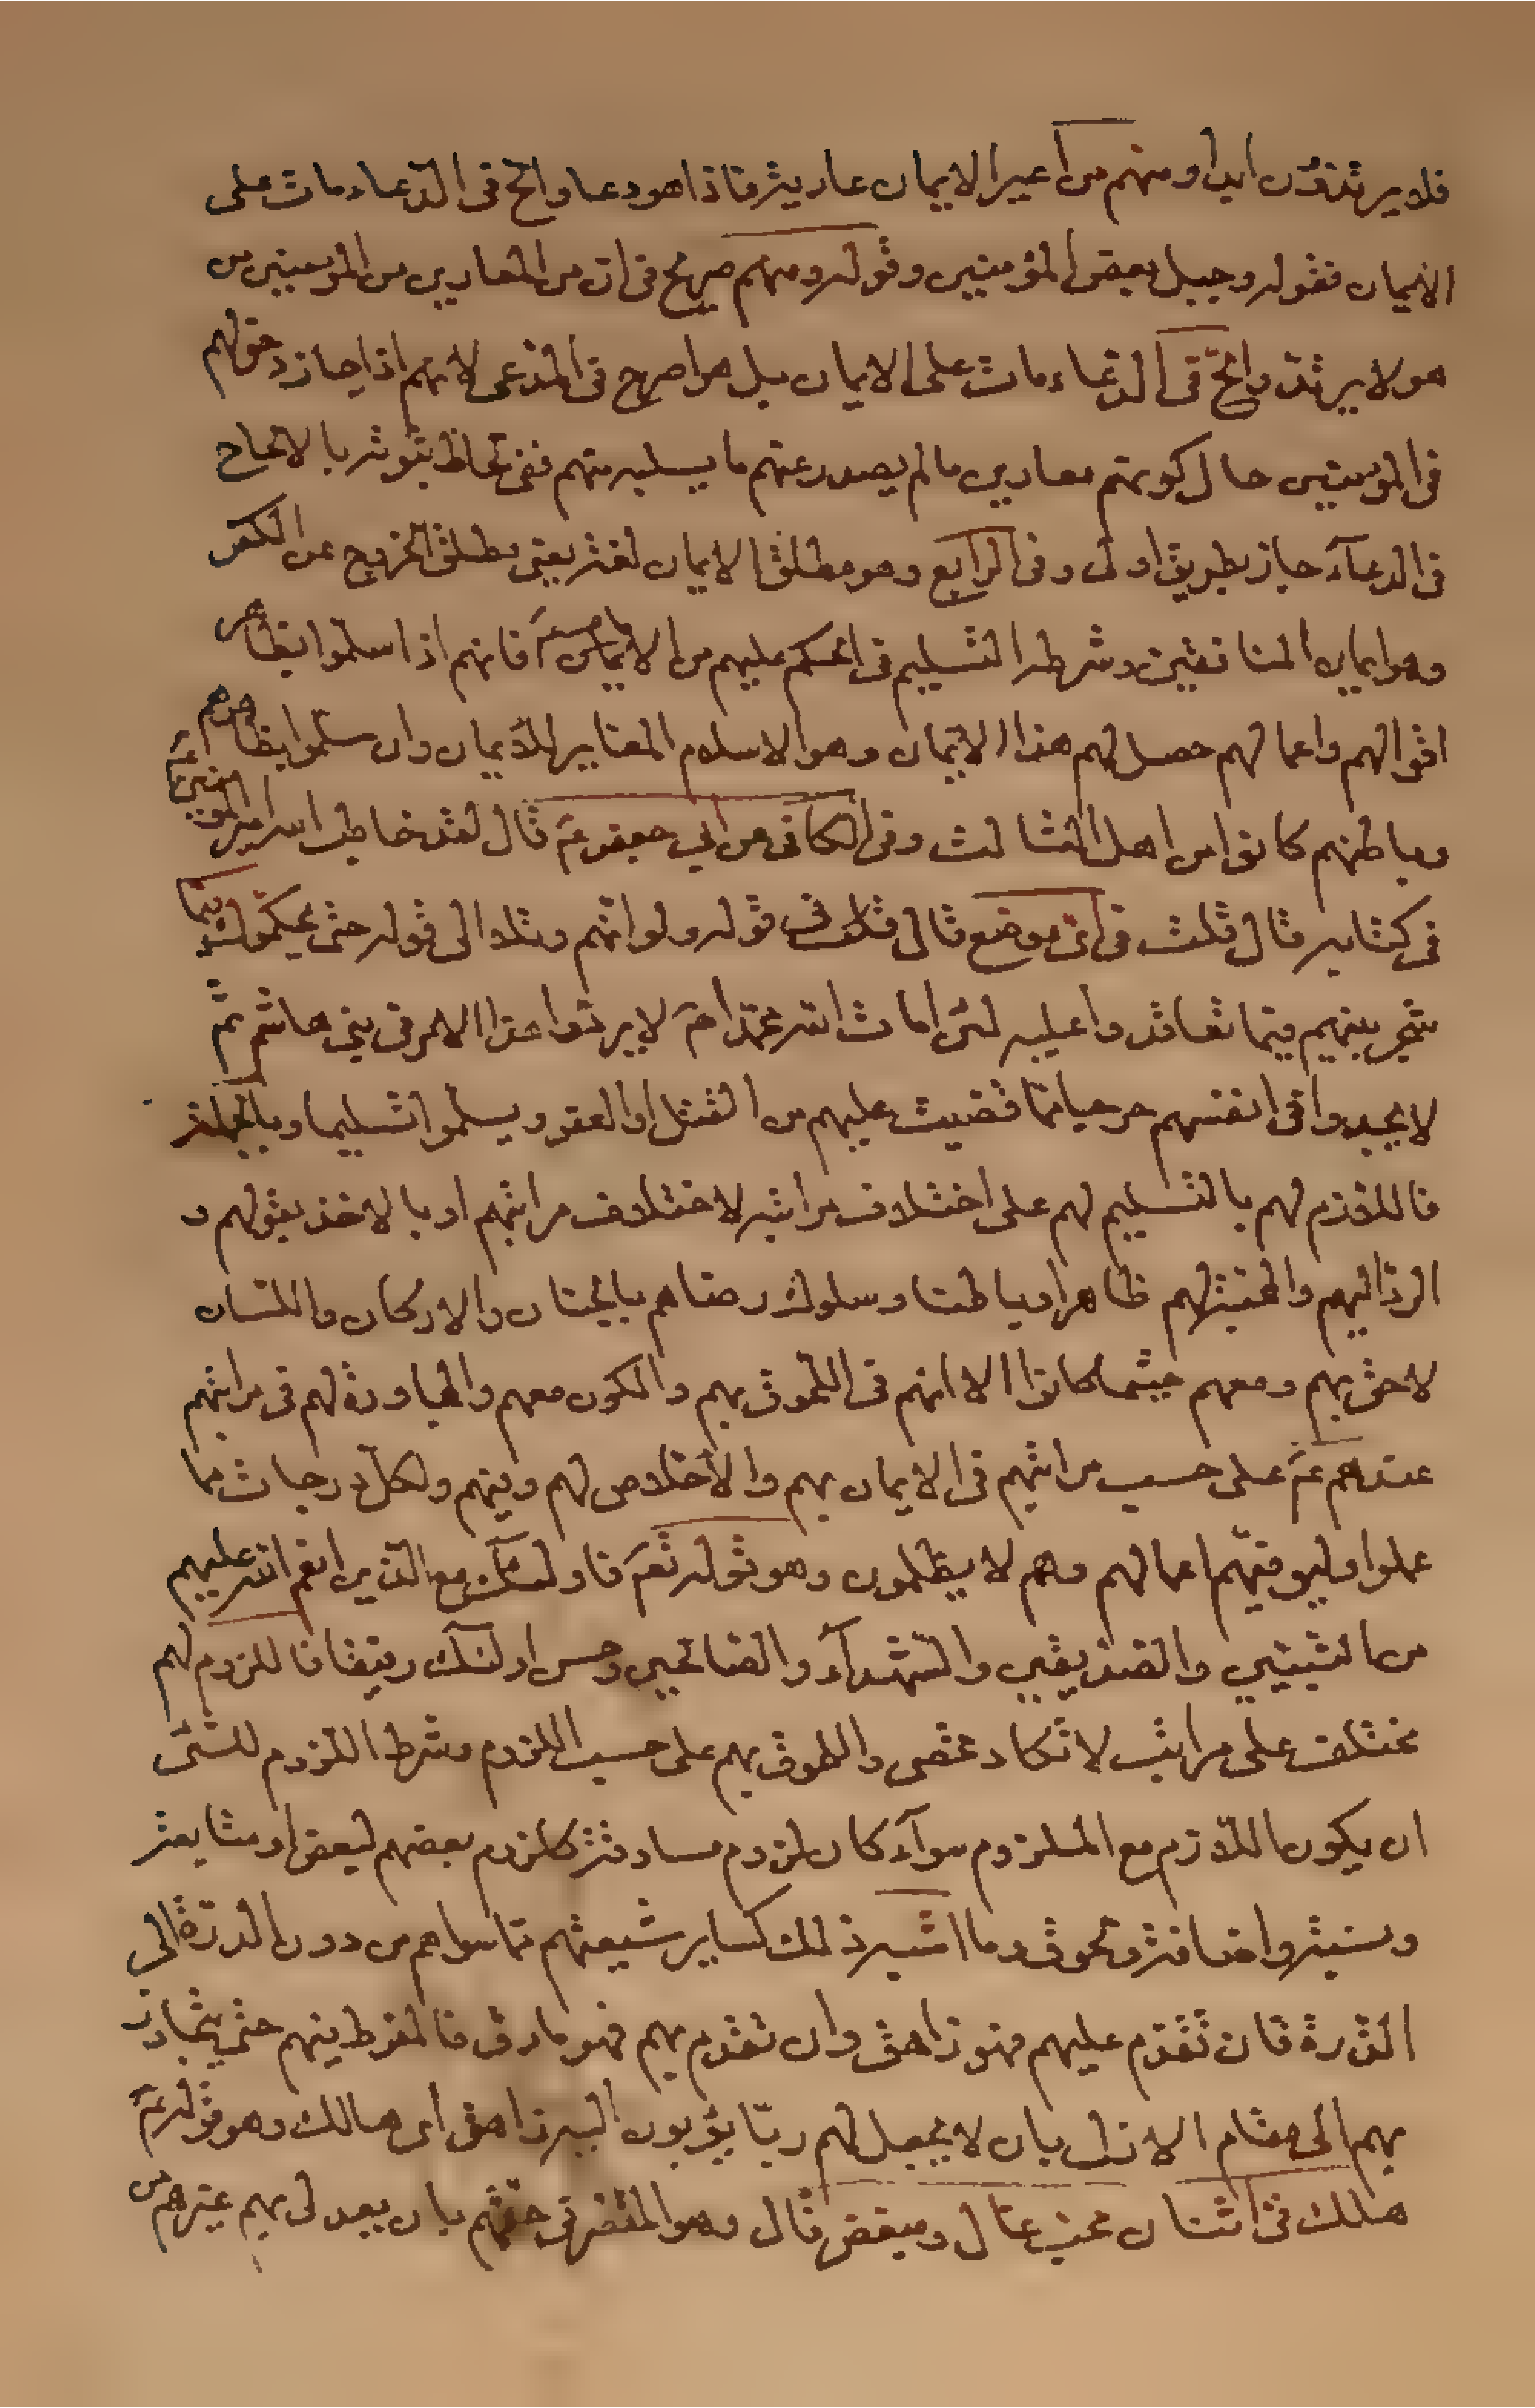 فلا يرتدون ابدا ومنهم من اعير الايمان عارية فاذا هو دعا والح في الدعاء مات على
الايمان فقوله وجبل بعض المؤمنين وقوله ومنهم صريح في ان من المعارين من المؤمنين من
هو لا يرتد والح في الدعاء مات على الايمان بل هو اصرح في المدعى لانهم اذا جاز دخولهم
في المؤمنين حال كونهم معارين ما لم يصدر عنهم ما يسلبه منهم ففي لحاظ ثبوته بالالحاح
في الدعآء جاز بطريق اولى وفي الرابع وهو مطلق الايمان لغة يعني مطلق الخروج عن الكفر
وهو ايمان المنافقين وشرط التسليم في الحكم عليهم من الايمان فانهم اذا سلموا بظاهر
اقوالهم واعمالهم حصل لهم هذا الايمان وهو الاسلام المغاير للايمان وان سلموا بظاهرهم
وباطنهم كانوا من اهل الثالث وفي الكافي عن ابي جعفر ع قال لقد خاطب الله امير المؤمنين ع
في كتابه قال قلت في اي موضع قال قلت في قوله ولو انهم وتلا الى قوله حتى يحكموك فيما
شجر بينهم فيما تعاقدوا عليه لئن امات الله محمدا ص لا يردوا هذا الامر في بني هاشم ثم
لا يجدوا في انفسهم حرجا مما قضيت عليهم من القتل او العفو ويسلموا تسليما وبالجملة
فاللازم لهم بالتسليم لهم على اختلاف مراتبه لاختلاف مراتبهم او بالاخذ بقولهم و
الرد اليهم والمحبة لهم ظاهرا وباطنا وسلوك رضاهم بالجنان والاركان واللسان
لاحق بهم ومعهم حيثما كانوا الا انهم في اللحوق بهم والكون معهم والمجاورة لهم في مراتبهم
عندهم ع على حسب مراتبهم في الايمان بهم والاخلاص لهم وفيهم ولكل درجات مما
عملوا وليوفيهم اعمالهم وهم لا يظلمون وهو قوله تع فاولئك مع الذين انعم الله عليهم
من النبيين والصديقين والشهدآء والصالحين وحسن اولئك رفيقا فاللزوم لهم
مختلف على مراتب لا تكاد تحصى واللحوق بهم على حسب اللزوم وشرط اللزوم للشئ
ان يكون اللازم مع الملزوم سوآء كان لزوم مساوقة كلزوم بعضهم لبعض او متابعة
ونسبة واضافة ولحوق وما اشبه ذلك كساير شيعتهم مما سواهم من دون الدرة الى
الذرة فان تقدم عليهم فهو زاهق وان تقدم بهم فهو مارق فالمفرط فيهم حتى يتجاوز
بهم الى مقام الازل بان لا يجعل لهم ربا يؤبون اليه زاهق اي هالك وهو قوله ع
هلك في اثنان محب غال ومبغض قال وهو المقصر في حقهم بان يعدل بهم غيرهم من